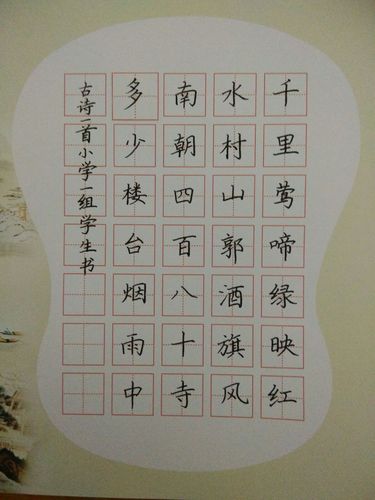 千里莺啼绿映红
水村山郭酒旗风
南朝四百八十寺
多少楼台烟雨中
古诗一首小学一组学生书